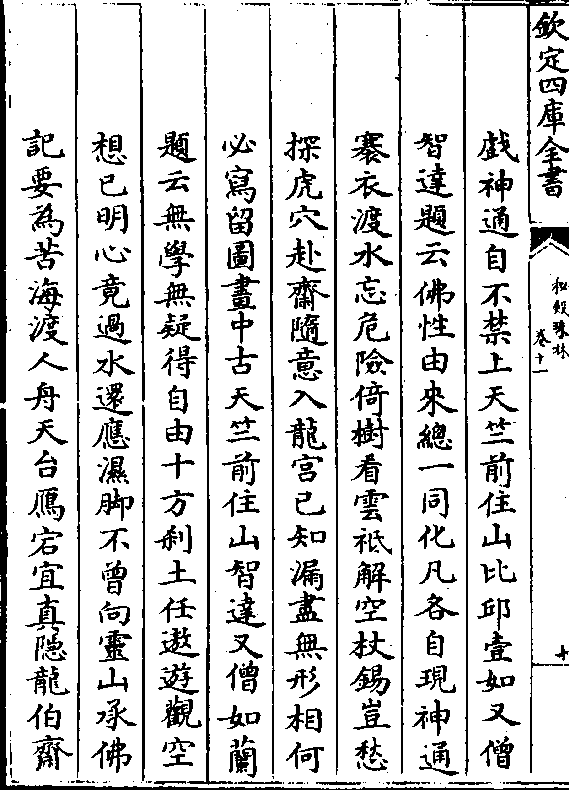 欽定四庫全書
秘殿珠林
卷十一
十
戲神通自不禁上天竺前住山比邱壹如又僧
智達題云佛性由來總一同化凡各自現神通
褰衣渡水忘危險倚樹看雲祗解空杖錫豈愁
探虎穴赴齋隨意入龍宫已知漏盡無形相何
必寫留圖畫中古天竺前住山智達又僧如蘭
題云無學無疑得自由十方刹土任遨遊觀空
想已明心竟過水還應濕脚不曾向靈山承佛
記要為苦海渡人舟天台鴈宕宜真隠龍伯齋